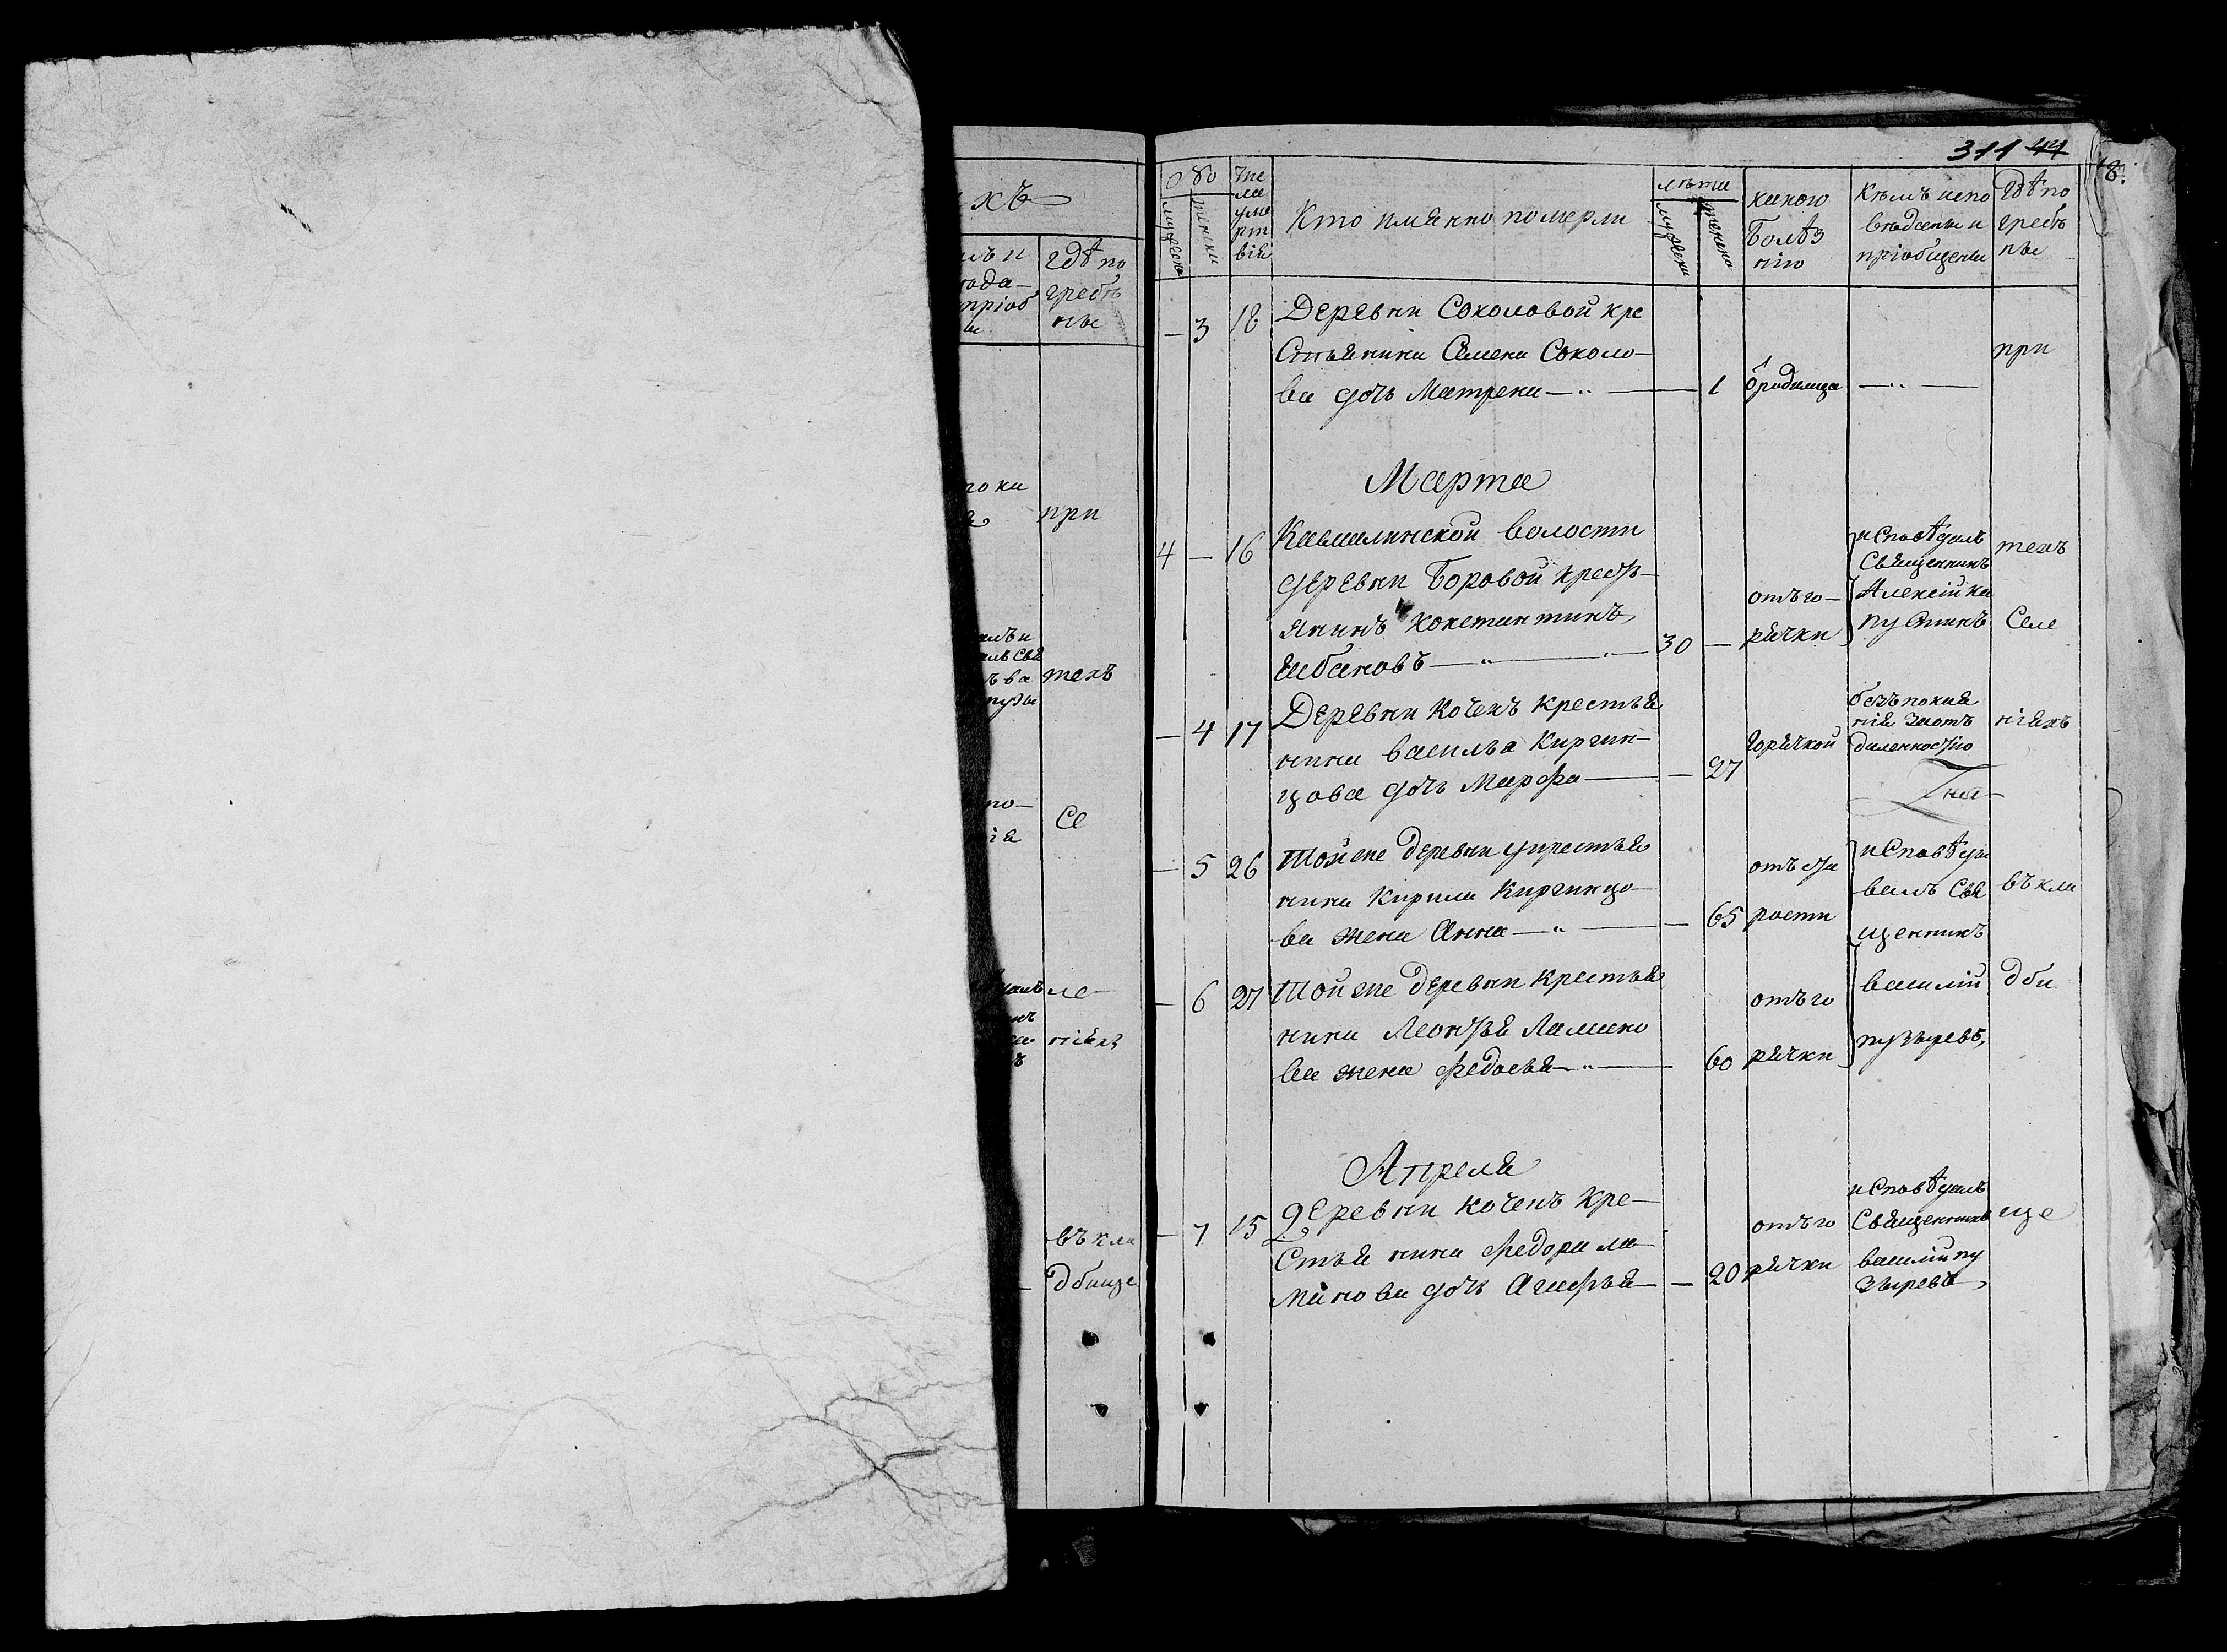 311 44
18.
хъ
гдѣ по
гребе
ны
при
техъ
Се
ле
ніяхъ
въ кла
дбище
о бо
муженс
женски
Кто имянно померли
лѣта
мужеска
женска
какою
болѣз
нію
Кѣмъ испо
вѣданы и
пріобщены
гдѣ по
гребе
ны
- 3 18 Деревни Соколовой кре
стьянина Семена Соколо-
ва дочь Матрена - 1 родимца
при
Марта
4 - 16 Кавшалинской волости
деревни Боровой кресть-
янинъ константинъ
Шабановъ 30 -
отъ го-
рячки
исповѣдалъ
Священникъ
Алексій ка
пустинъ
техъ
Селе
- 4 17 Деревни кочекъ крестья
нина василья Киргин-
цова дочь Марфа - 27
Горячкой
безъ покая
нія за отъ
даленностію
ніяхъ
- 5 26 Той же деревни крестья
нина Кирила Киргинцо-
ва жена Анна - 65
отъ ста
рости
исповѣды
валъ Свя
щенникъ
въ кла
- 6 27 Той же деревни крестья
нина Леонтья Ламано
ва жена Федосья 60
отъ го
рячки
василій
пузыревъ,
дби
Апреля
- 7 15 Деревни кочекъ кре-
стья нина Федора ла
манова дочь Агафья - 20
отъ го
рячки
исповѣдалъ
Священникъ
василій пу
зыревъ
ще